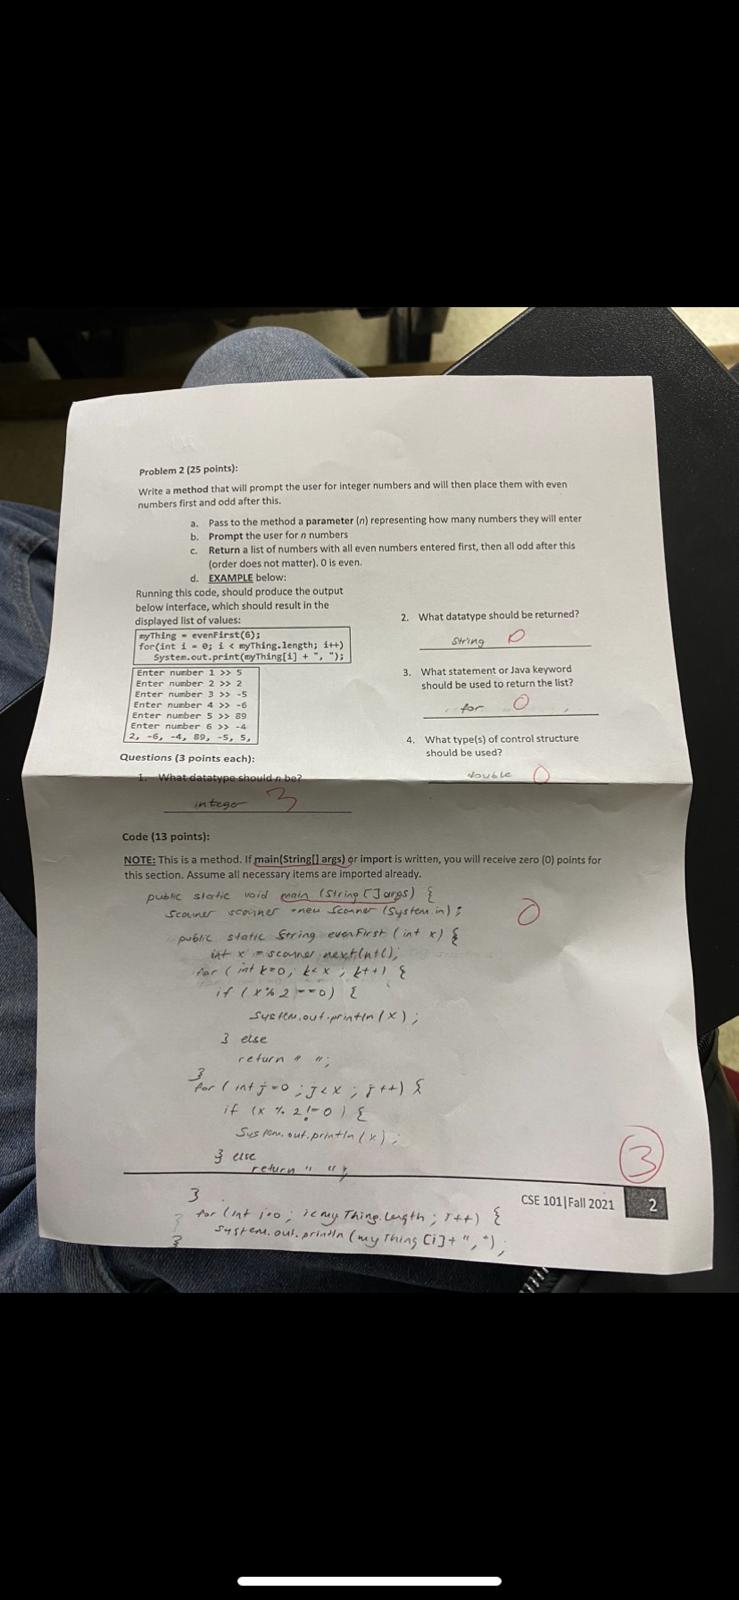 Problem 2 (25 points):
Write a method that will prompt the user for integer numbers and will then place them with even
numbers first and odd after this.
a. Pass to the method a parameter (n) representing how many numbers they will enter
b. Prompt the user for n numbers
c. Return a list of numbers with all even numbers entered first, then all odd after this
(order does not matter). 0 is even.
d. EXAMPLE below:
Running this code, should produce the output
below interface, which should result in the
displayed list of values:
myThing = evenFirst(6);
for(int i = 0; i < myThing.length; i++)
System.out.print(myThing[i] + ", ");
Enter number 1 >> 5
Enter number 2 >> 2
Enter number 3 >> -5
Enter number 4 >> -6
Enter number 5 >> 89
Enter number 6 >> -4
2, -6, -4, 89, -5, 5,
Questions (3 points each):
1. What datatype should n be?
integer 3
2. What datatype should be returned?
String 0
3. What statement or Java keyword
should be used to return the list?
for 0
4. What type(s) of control structure
should be used?
double 0
Code (13 points):
NOTE: This is a method. If main(String[] args) or import is written, you will receive zero (0) points for
this section. Assume all necessary items are imported already.
public static void main (String []args) {
Scanner scanner = new Scanner (System.in); 0
public static String evenFirst (int x) {
int x = scanner.nextInt();
for (int k=0; k<x; k++) {
if (x%2 ==0) {
System.out.println(x);
} else
return " ";
}
for (int j=0; j<x; j++) {
if (x % 2!=0) {
System.out.println(x);
} else
return " ";
3
}
for (int i=0; i<myThing.length; i++) {
System.out.println(myThing[i]+ ",");
}
}
CSE 101|Fall 2021 2